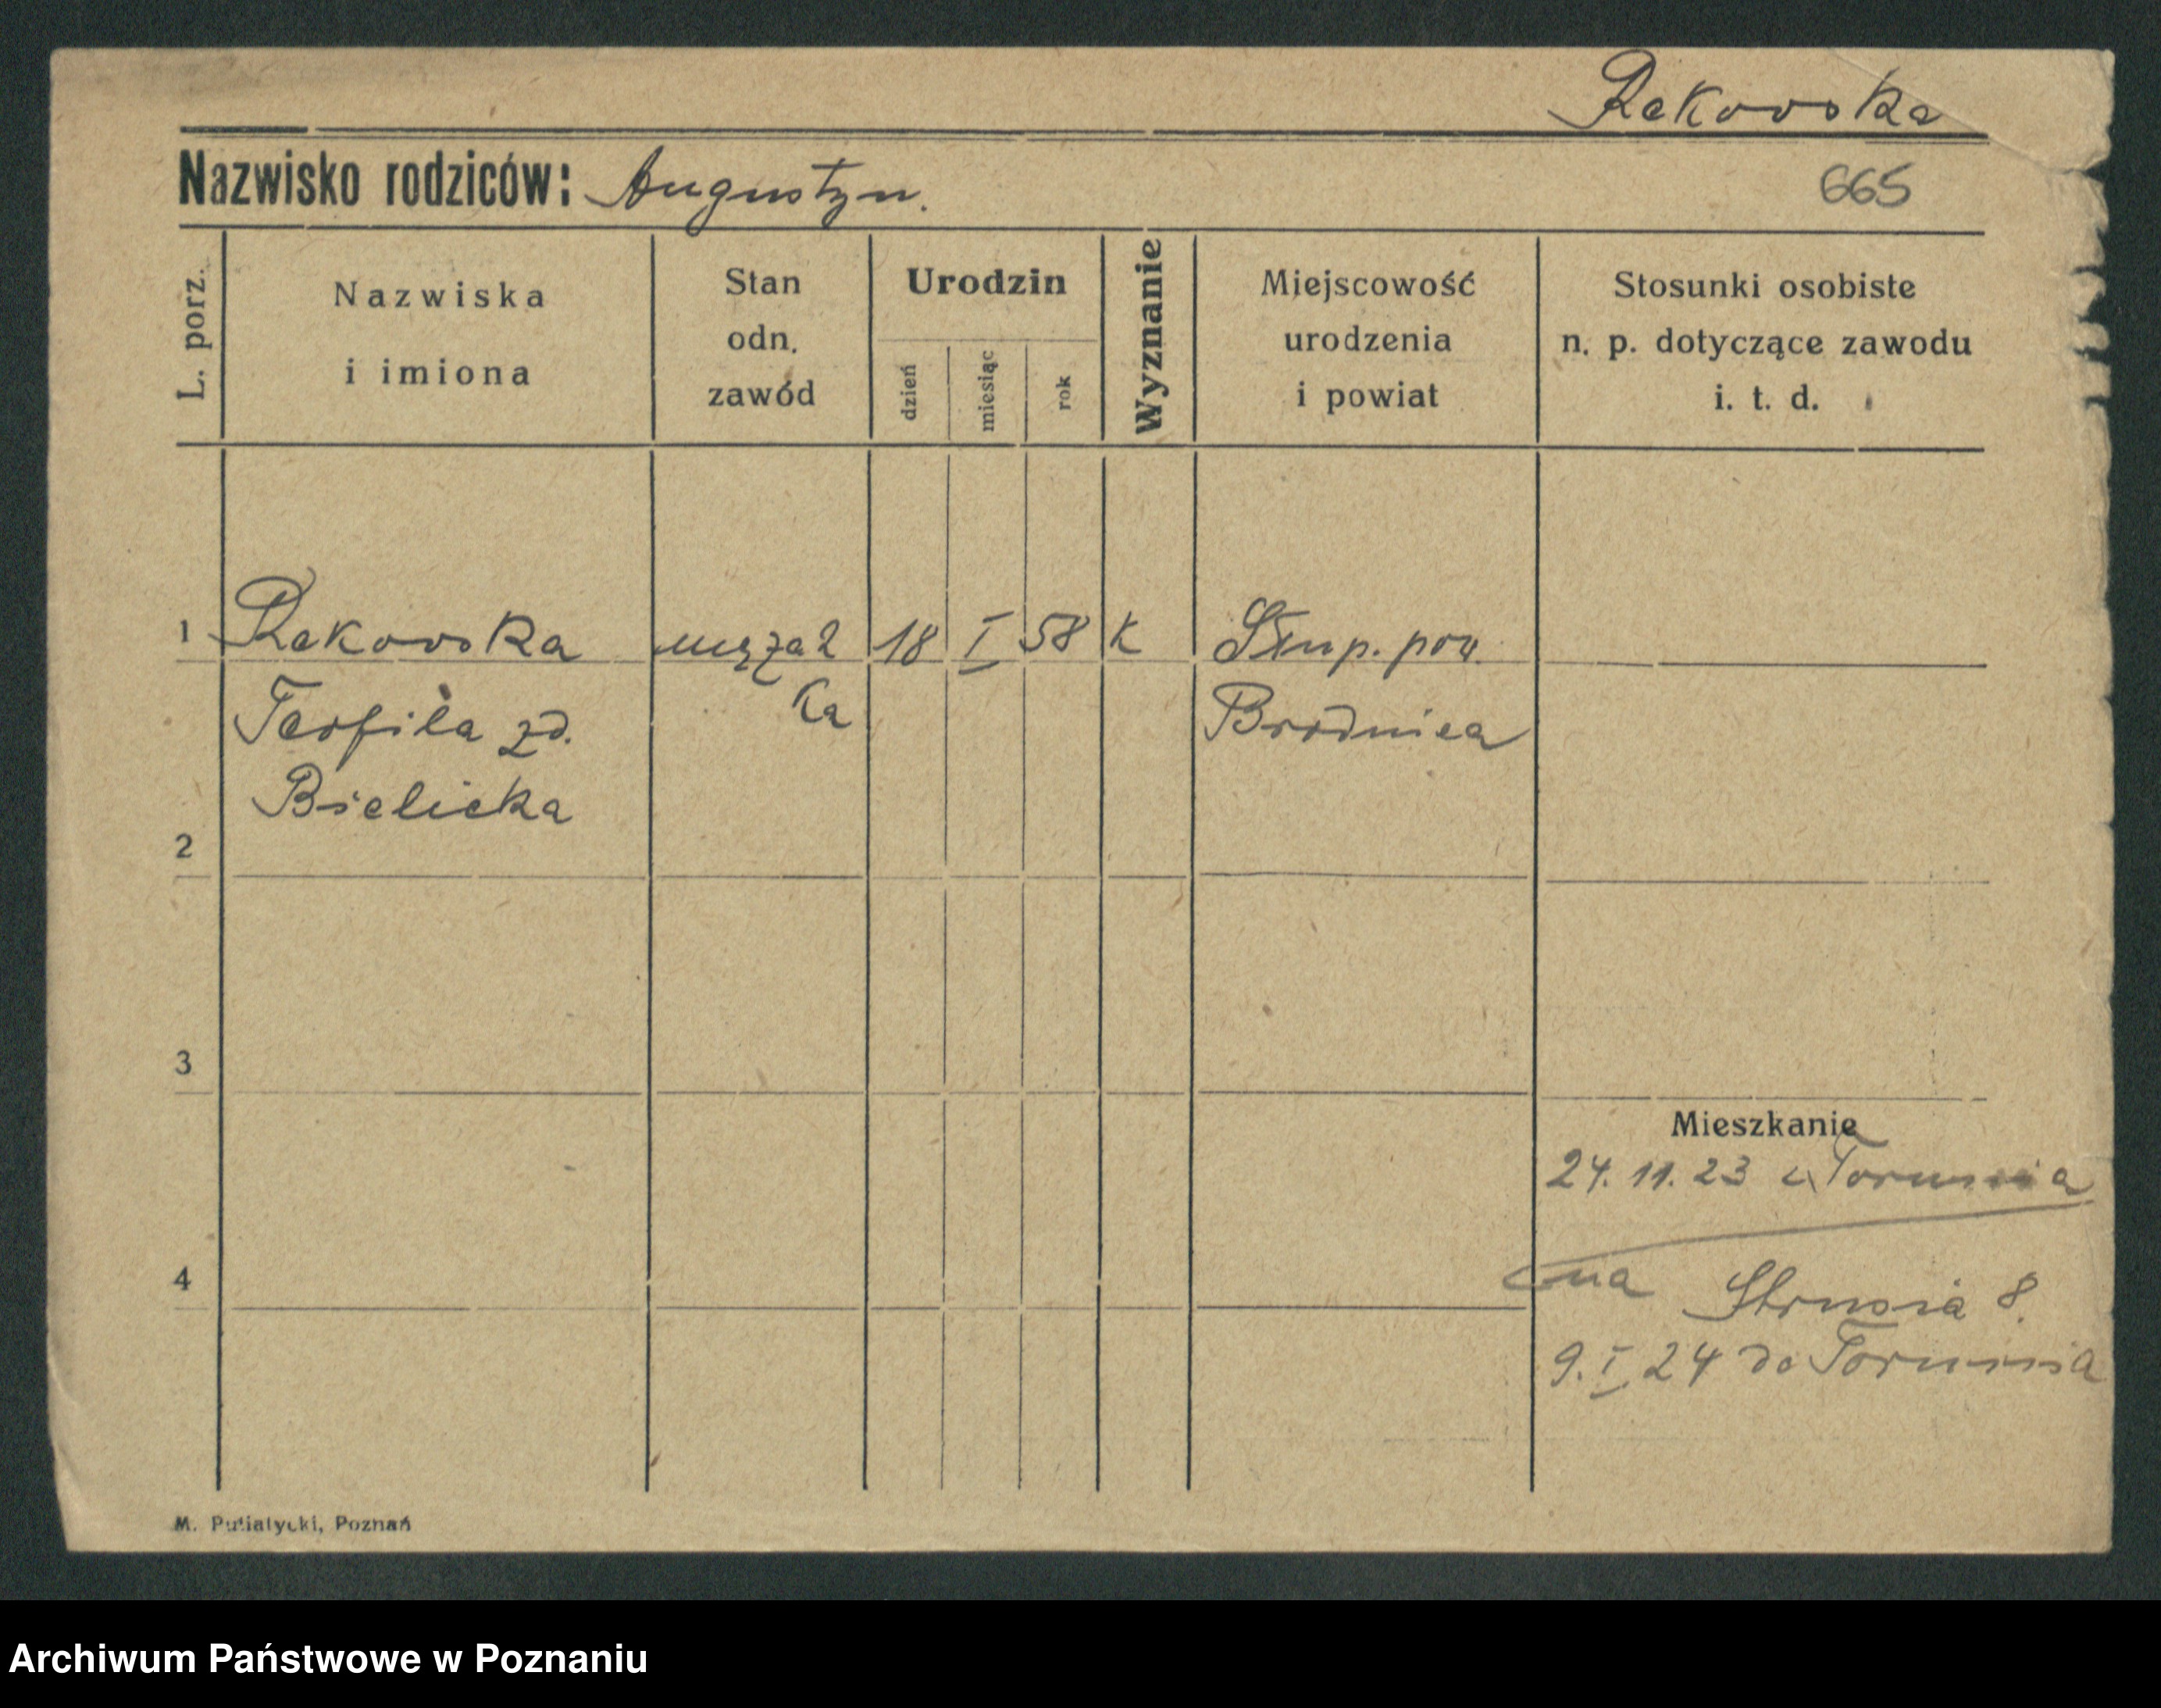 Rakowska
Nazwisko rodziców: Augustyn.
665
L. porz.
Nazwiska
i imiona
Stan
odn.
zawód
Urodzin
dzień
miesiąc
rok
Wyznanie
Miejscowość
urodzenia
i powiat
Stosunki osobiste
n. p. dotyczące zawodu
i. t. d.
1 Rakowska mężat 18 I 58 K Słup. pow.
Teofila zd. ka Brodnica
Bielicka
2
3
Mieszkanie
24.11.23 z Torunia
4 na Strusia 8.
9.I.24 do Torunia
M. Putiatycki, Poznań
Archiwum Państwowe w Poznaniu